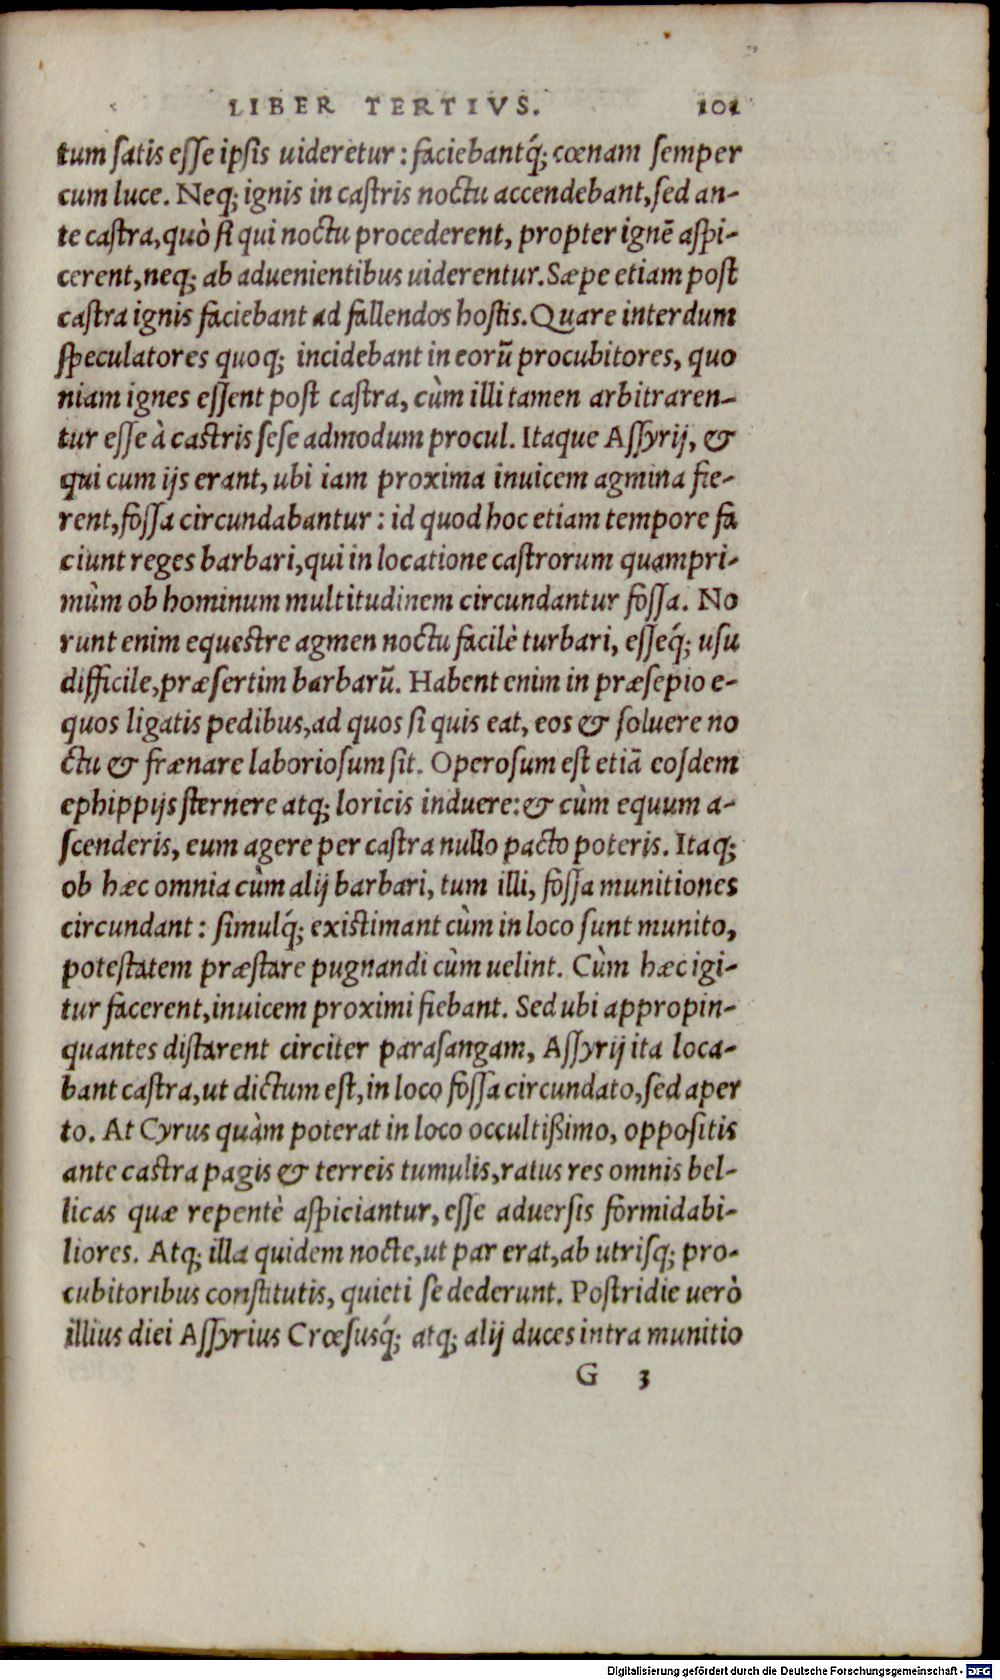 LIBER TERTIVS. 101
tum satis esse ipsis uideretur: faciebantq́; cœnam semper
cum luce. Neq; ignis in castris noctu accendebant, sed an-
te castra, quò si qui noctu procederent, propter ignē aspi-
cerent, neq; ab aduenientibus uiderentur. Sæpe etiam post
castra ignis faciebant ad fallendos hostis. Quare interdum
speculatores quoq; incidebant in eorū procubitores, quo
niam ignes essent post castra, cùm illi tamen arbitraren-
tur esse à castris sese admodum procul. Itaque Assyrij, &
qui cum ijs erant, ubi iam proxima inuicem agmina fie-
rent, fossa circundabantur: id quod hoc etiam tempore fa
ciunt reges barbari, qui in locatione castrorum quampri-
mùm ob hominum multitudinem circundantur fossa. No
runt enim equestre agmen noctu facilè turbari, esseq́; usu
difficile, præsertim barbarū. Habent enim in præsepio e-
quos ligatis pedibus, ad quos si quis eat, eos & soluere no
ctu & frænare laboriosum sit. Operosum est etiā eosdem
ephippijs sternere atq; loricis induere: & cùm equum a-
scenderis, eum agere per castra nullo pacto poteris. Itaq;
ob hæc omnia cùm alij barbari, tum illi, fossa munitiones
circundant: simulq́; existimant cùm in loco sunt munito,
potestatem præstare pugnandi cùm uelint. Cùm hæc igi-
tur facerent, inuicem proximi fiebant. Sed ubi appropin-
quantes distarent circiter parasangam, Assyrij ita loca-
bant castra, ut dictum est, in loco fossa circundato, sed aper
to. At Cyrus quàm poterat in loco occultißimo, oppositis
ante castra pagis & terreis tumulis, ratus res omnis bel-
licas quæ repentè aspiciantur, esse aduersis formidabi-
liores. Atq; illa quidem nocte, ut par erat, ab utrisq; pro-
cubitoribus constitutis, quieti se dederunt. Postridie uerò
illius diei Assyrius Crœsusq́; atq; alij duces intra munitio
G 3
Digitalisierung gefördert durch die Deutsche Forschungsgemeinschaft - DFG